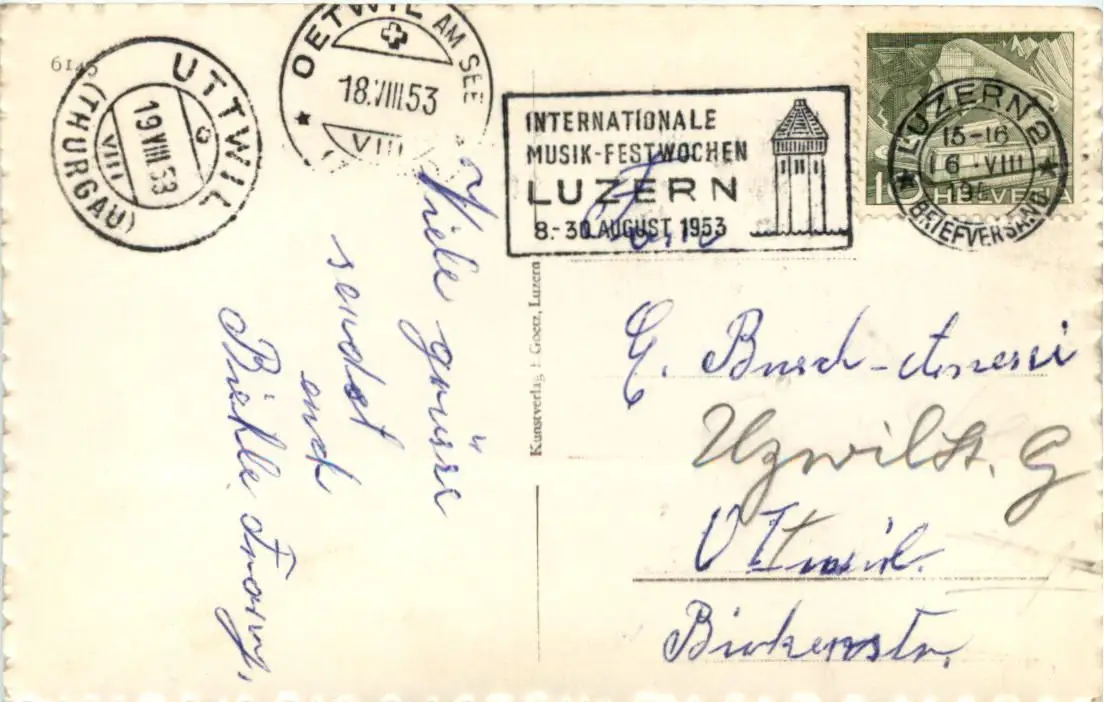 6145
UTTWIL
(THURGAU)
19.VIII.53
VIII
OETWIL AM SEE
18.VIII.53
VIII
INTERNATIONALE
MUSIK-FESTWOCHEN
LUZERN
8.-30. AUGUST 1953
LUZERN 2
15-16
VIII
BRIEFVERSAND
HELVETIA
Viele grüsse
sendet
euch
Fam.
E. Busch
Uzwil St. G
Uttwil.
Birkenstr.
Kunstverlag E. Goetz, Luzern